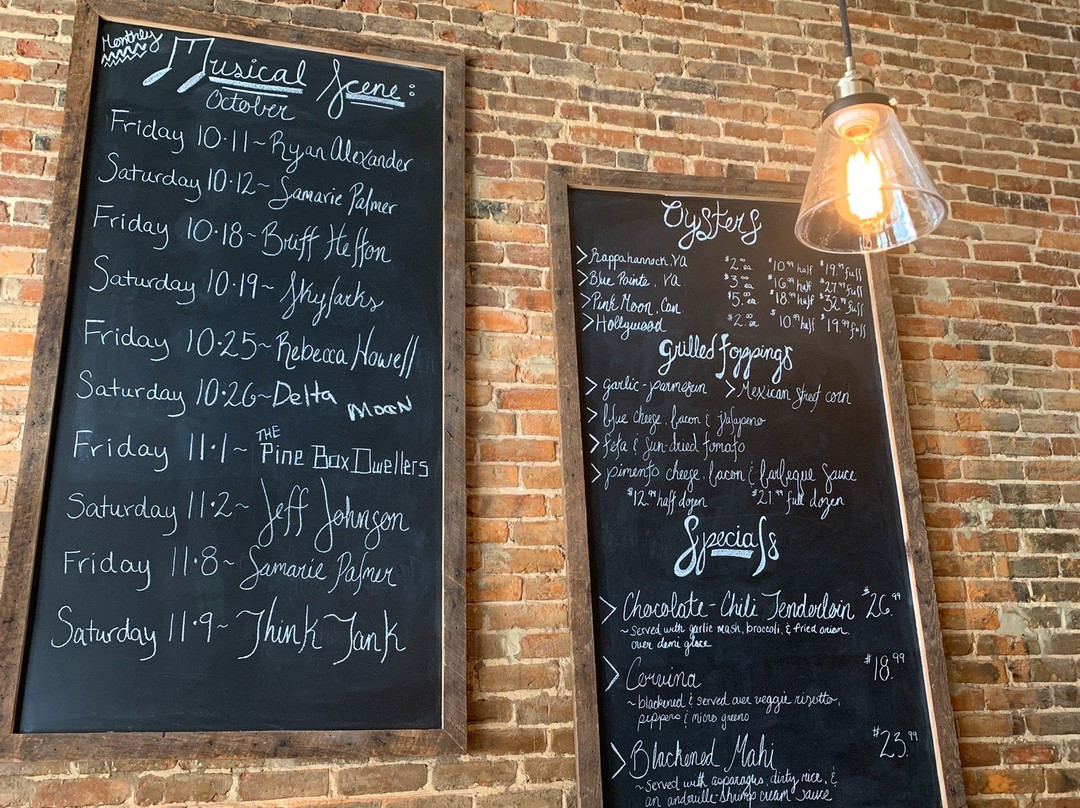 Monthly
Musical Scene:
October
Friday 10·11~Ryan Alexander
Saturday 10·12~ Samarie Palmer
Friday 10·18~Briff Hefton
Saturday 10·19~ Skyforks
Friday 10·25~Rebecca Howell
Saturday 10·26~Delta Moon
Friday 11·1~ THE Pine Box Dwellers
Saturday 11·2~ Jeff Johnson
Friday 11·8~ Samarie Palmer
Saturday 11·9~ Think Tank
Oysters
>Rappahannock, VA $2.00 ea $10.99 half $19.99 full
>Blue Pointe, VA $3.00 ea $16.99 half $27.99 full
>Pink Moon, Can $5.00 ea $18.99 half $32.99 full
>Hollywood $2.00 ea $10.99 half $19.99 full
Grilled Toppings
> garlic-parmesan > Mexican street corn
> blue cheese, bacon & jalapeno
> feta & sun-dried tomato
> pimento cheese, bacon & barbeque sauce
$12.99 half dozen $21.99 full dozen
Specials
> Chocolate-Chili Tenderloin $26.99
~Served with garlic mash, broccoli, & fried onion
over demi glace
> Corvina $18.99
~blackened & served over veggie risotto,
peppers & micro greens
> Blackened Mahi $23.99
~Served with asparagus, dirty rice, &
an andouille-shrimp cream sauce